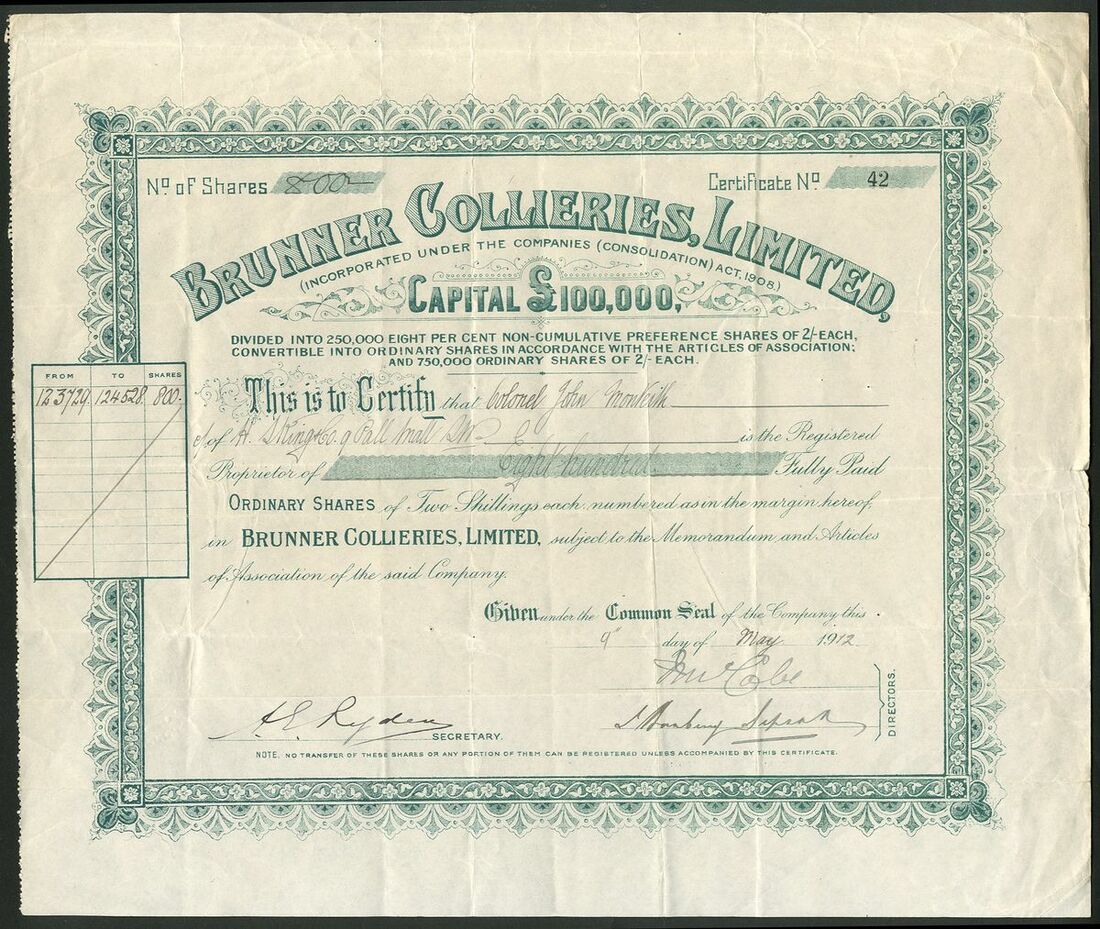 No. of Shares 800
Certificate No. 42
BRUNNER COLLIERIES, LIMITED,
(INCORPORATED UNDER THE COMPANIES (CONSOLIDATION) ACT, 1908.)
CAPITAL £100,000,
DIVIDED INTO 250,000 EIGHT PER CENT NON-CUMULATIVE PREFERENCE SHARES OF 2/- EACH,
CONVERTIBLE INTO ORDINARY SHARES IN ACCORDANCE WITH THE ARTICLES OF ASSOCIATION;
AND 750,000 ORDINARY SHARES OF 2/- EACH.
FROM TO SHARES
123729 124528 800
This is to Certify that Colonel John Monteith
c/ of H. S King & Co. 9 Pall Mall SW is the Registered
Proprietor of Eight hundred Fully Paid
ORDINARY SHARES of Two Shillings each, numbered as in the margin hereof,
in BRUNNER COLLIERIES, LIMITED, subject to the Memorandum and Articles
of Association of the said Company.
Given under the Common Seal of the Company this
9" day of May 1912
DIRECTORS.
A. E. Ryden
SECRETARY.
NOTE. NO TRANSFER OF THESE SHARES OR ANY PORTION OF THEM CAN BE REGISTERED UNLESS ACCOMPANIED BY THIS CERTIFICATE.